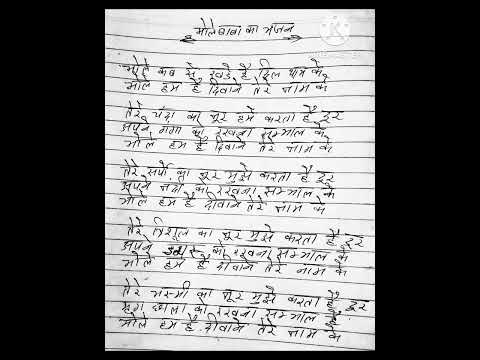 भोले बाबा का भजन
भोले कब से खड़े हैं दिल थाम के
भोले हम हैं दिवाने तेरे नाम के
तेरे चंदा का नूर हमें करता है दूर
अपने गंगा को रखना सम्भाल के
भोले हम हैं दिवाने तेरे नाम के
तेरे सर्पो का नूर मुझे करता है दूर
अपने को रखना सम्भाल के
भोले हम हैं दीवाने तेरे नाम के
तेरे त्रिशूल का नूर मुझे करता है दूर
अपने को रखना सम्भाल के
भोले हम हैं दीवाने तेरे नाम के
तेरे भस्मी का नूर मुझे करता है दूर
मृग छाला को रखना सम्भाल के
भोले हम हैं दीवाने तेरे नाम के